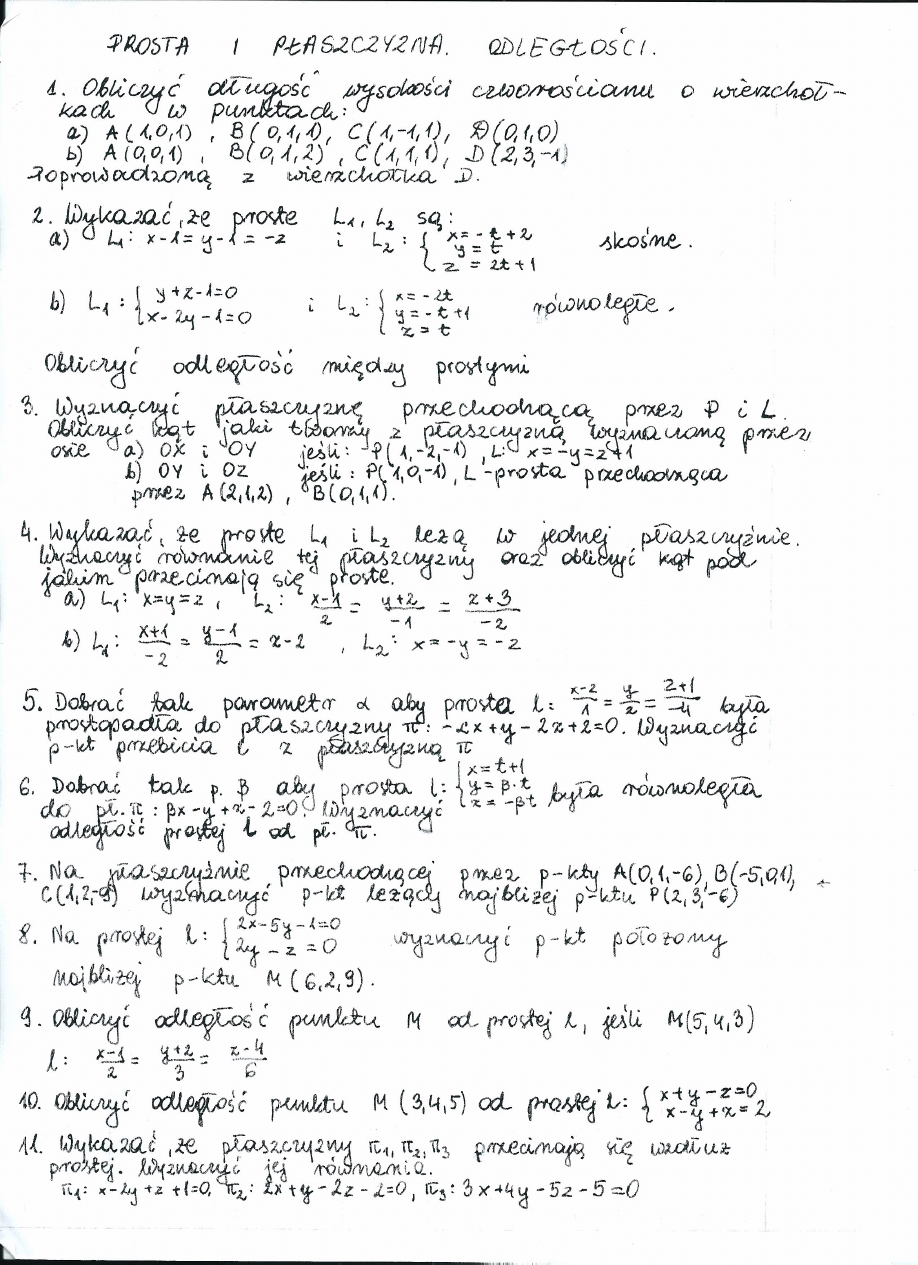 PROSTA I PŁASZCZYZNA. ODLEGŁOŚCI.
1. Obliczyć długość wysokości czworościanu o wierzchoł-
kach w punktach:
a) A(1,0,1), B(0,1,1), C(1,-1,1), D(0,1,0)
b) A(0,0,1), B(0,1,2), C(1,1,1), D(2,3,-1)
poprowadzoną z wierzchołka D.
2. Wykazać, że proste L₁, L₂ są:
a) L₁: x-1=y-1=-z i L₂: { x=-t+2 skośne.
y=t
z=2t+1
b) L₁: { y+z-1=0 i L₂: { x=-2t równoległe.
x-2y-1=0 y=-t+1
z=t
Obliczyć odległość między prostymi
3. Wyznaczyć płaszczyznę przechodzącą przez P i L.
Obliczyć kąt jaki tworzy z płaszczyzną wyznaczoną przez
osie a) OX i OY jeśli: P(1,-2,-1), L: x=-y=z+1
b) OY i OZ jeśli: P(1,0,-1), L-prosta przechodząca
przez A(2,1,2), B(0,1,1).
4. Wykazać, że proste L₁ i L₂ leżą w jednej płaszczyźnie.
Wyznaczyć równanie tej płaszczyzny oraz obliczyć kąt pod
jakim przecinają się proste.
a) L₁: x=y=z, L₂: (x-1)/2 = (y+2)/-1 = (z+3)/-2
b) L₁: (x+1)/-2 = (y-1)/2 = z-2, L₂: x=-y=-z
5. Dobrać tak parametr α aby prosta l: (x-2)/1 = y/2 = (z+1)/-4 była
prostopadła do płaszczyzny π: -αx+y-2z+2=0. Wyznaczyć
p-kt przebicia l z płaszczyzną π
6. Dobrać tak p. β aby prosta l: { x=t+1 była równoległa
y=β·t
z=-βt
do pł. π: βx-y+z-2=0. Wyznaczyć
odległość prostej l od pł. π.
7. Na płaszczyźnie przechodzącej przez p-kty A(0,1,-6), B(-5,0,1),
C(1,2,-9) wyznaczyć p-kt leżący najbliżej p-ktu P(2,3,-6)
8. Na prostej l: { 2x-5y-1=0 wyznaczyć p-kt położony
2y-z=0
najbliżej p-ktu M(6,2,9).
9. Obliczyć odległość punktu M od prostej l, jeśli M(5,4,3)
l: (x-1)/2 = (y+2)/3 = (z-4)/6
10. Obliczyć odległość punktu M(3,4,5) od prostej l: { x+y-z=0
x-y+z=2
11. Wykazać, że płaszczyzny π₁, π₂, π₃ przecinają się wzdłuż
prostej. Wyznaczyć jej równania.
π₁: x-2y+z+1=0, π₂: 2x+y-2z-2=0, π₃: 3x+4y-5z-5=0